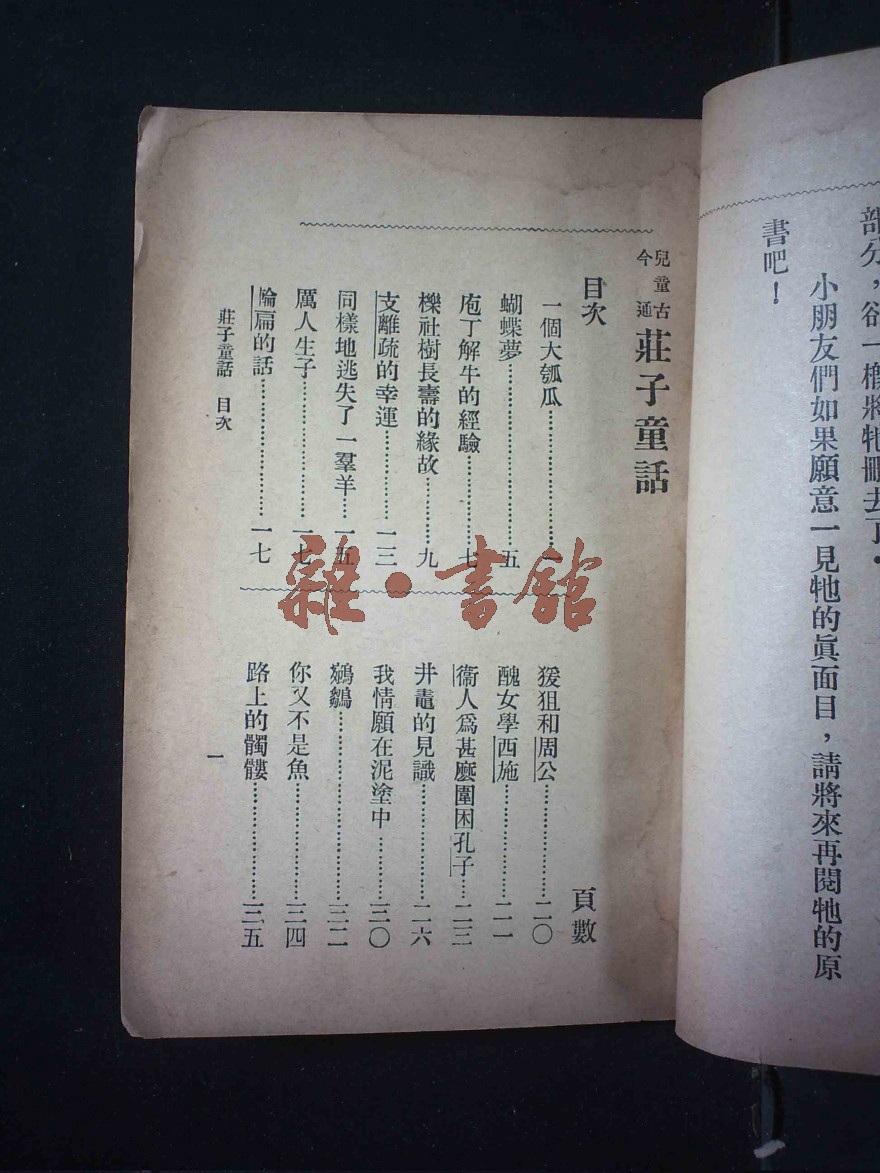 部分，欲一槪將牠刪去了．
小朋友們如果願意一見牠的眞面目，請將來再閱牠的原
書吧！
兒童古
今通
莊子童話
目次
頁數
一個大瓠瓜…………一
蝴蝶夢…………五
庖丁解牛的經驗…………七
櫟社樹長壽的緣故…………九
支離疏的幸運…………一三
同樣地逃失了一羣羊…………一五
厲人生子…………一七
輪扁的話…………一七
猨狙和周公…………二〇
醜女學西施…………二一
衞人爲甚麼圍困孔子…………二三
井鼃的見識…………二六
我情願在泥塗中…………三〇
鵷鶵…………三二
你又不是魚…………三四
路上的髑髏…………三五
莊子童話 目次
一
雜·書館